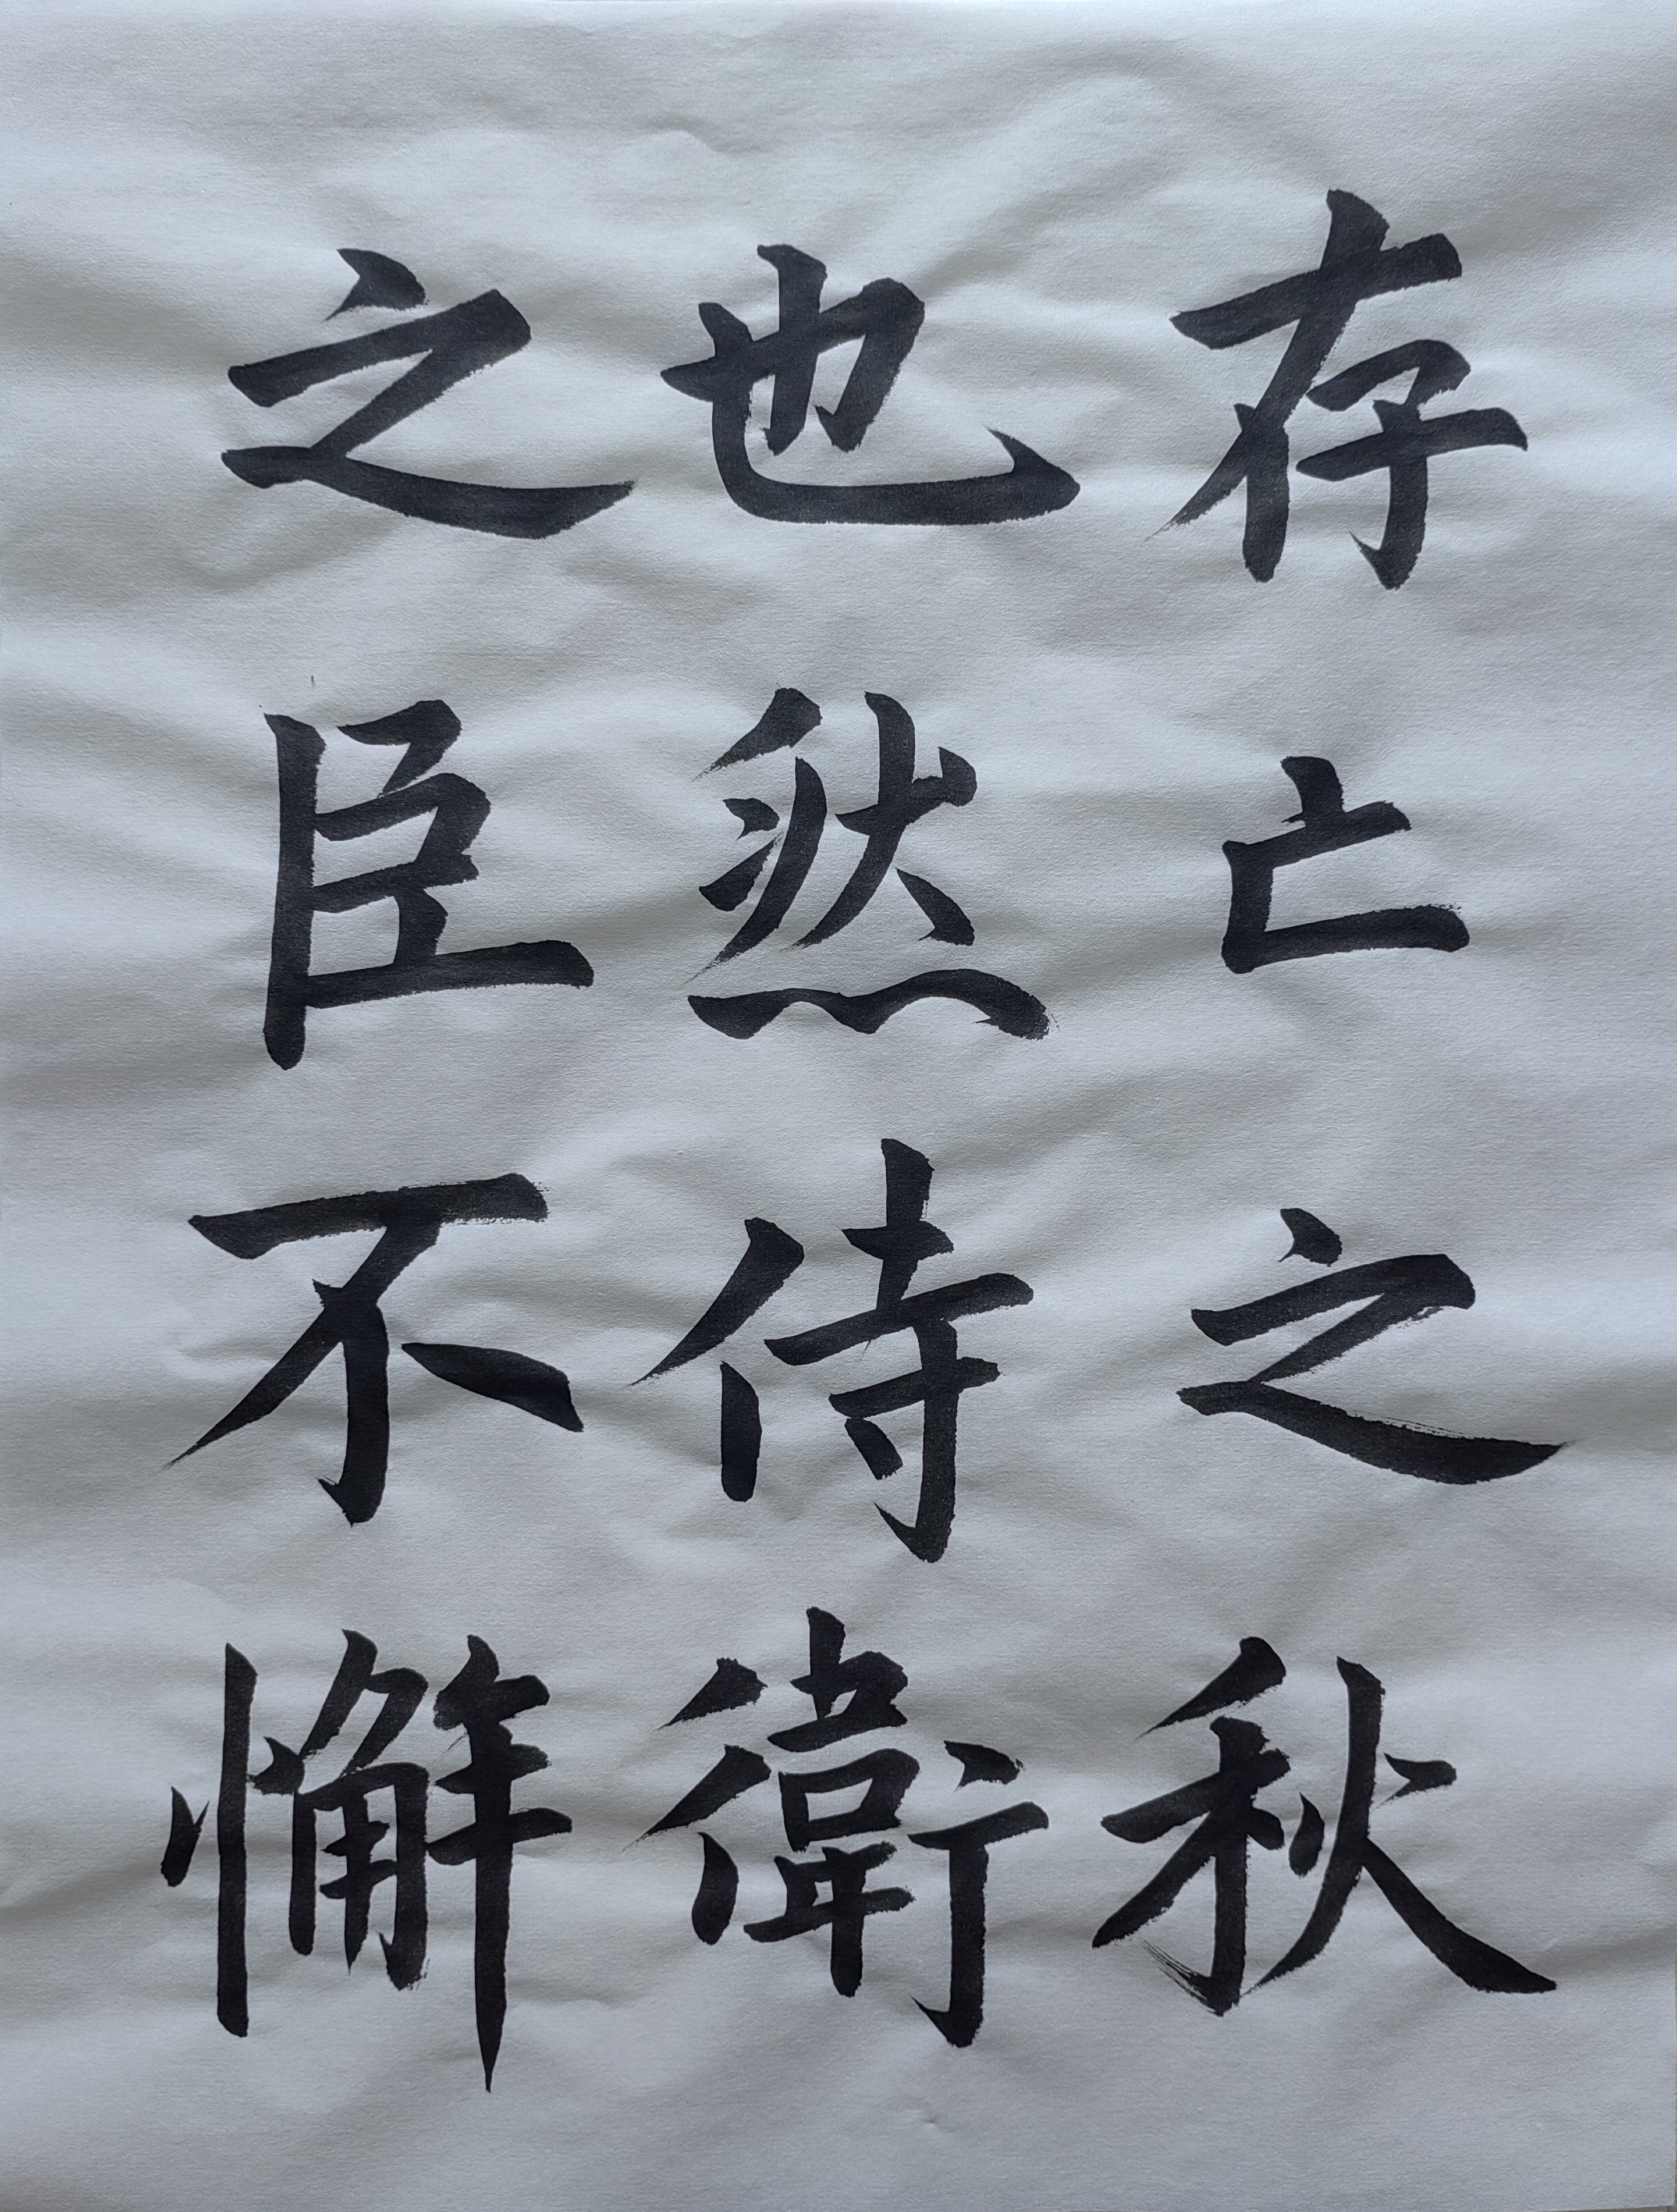 存亡之秋
也然侍衛
之臣不懈